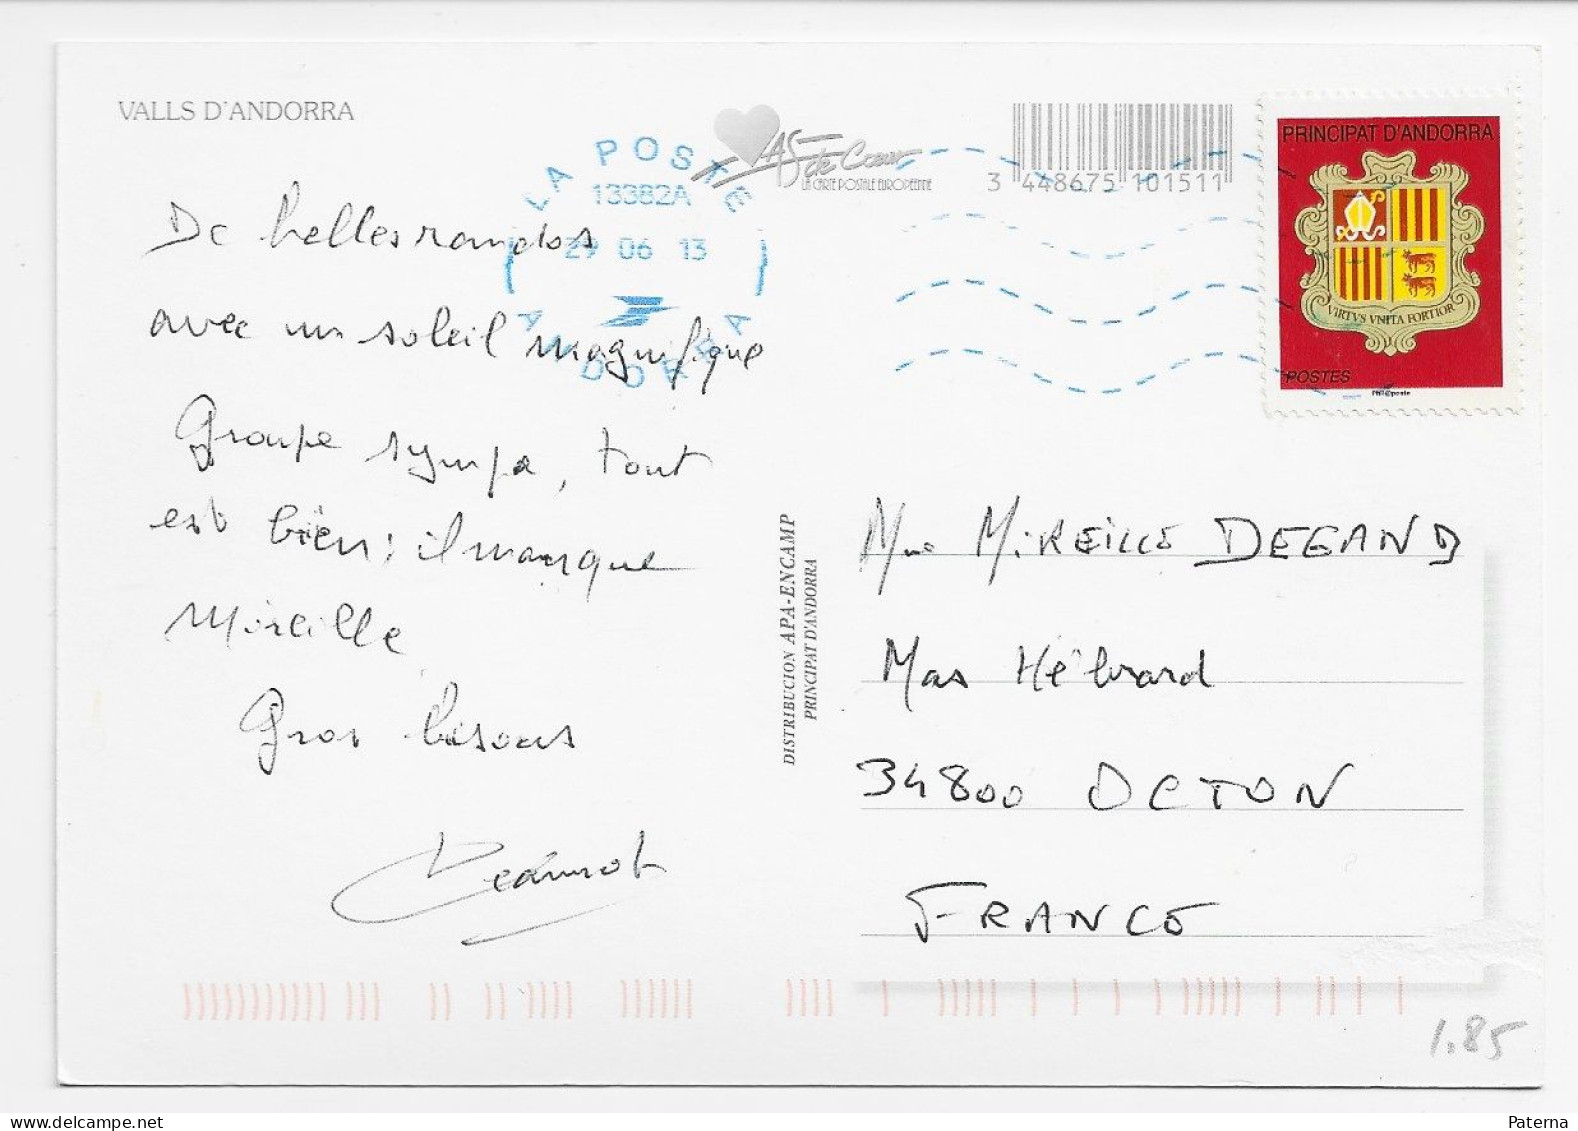 VALLS D'ANDORRA
AS de Cœur
LA CARTE POSTALE EUROPÉENNE
3 448675 101511
LA POSTE
13382A
29 06 13
ANDORRA
PRINCIPAT D'ANDORRA
VIRTVS VNITA FORTIOR
POSTES
Phil@poste
De belles randos
avec un soleil magnifique
Groupe sympa, tout
est bien : il manque
Mireille
Gros bisous
Jeannot
DISTRIBUCION APA-ENCAMP
PRINCIPAT D'ANDORRA
Mme MIREILLE DEGAND
Mas Hébrard
34800 OCTON
FRANCE
1.85
Paterna